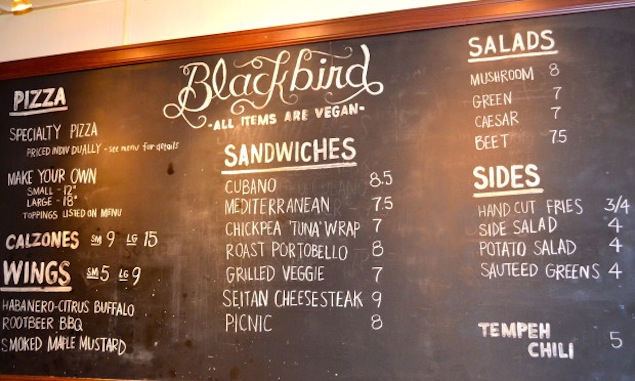 Blackbird
-ALL ITEMS ARE VEGAN-
PIZZA
SPECIALTY PIZZA
PRICED INDIVIDUALLY - see menu for details
MAKE YOUR OWN
SMALL - 12"
LARGE - 18"
TOPPINGS LISTED ON MENU
CALZONES SM 9 LG 15
WINGS SM 5 LG 9
HABANERO-CITRUS BUFFALO
ROOTBEER BBQ
SMOKED MAPLE MUSTARD
SANDWICHES
CUBANO 8.5
MEDITERRANEAN 7.5
CHICKPEA 'TUNA' WRAP 7
ROAST PORTOBELLO 8
GRILLED VEGGIE 7
SEITAN CHEESESTEAK 9
PICNIC 8
SALADS
MUSHROOM 8
GREEN 7
CAESAR 7
BEET 7.5
SIDES
HAND CUT FRIES 3/4
SIDE SALAD 4
POTATO SALAD 4
SAUTEED GREENS 4
TEMPEH
CHILI 5